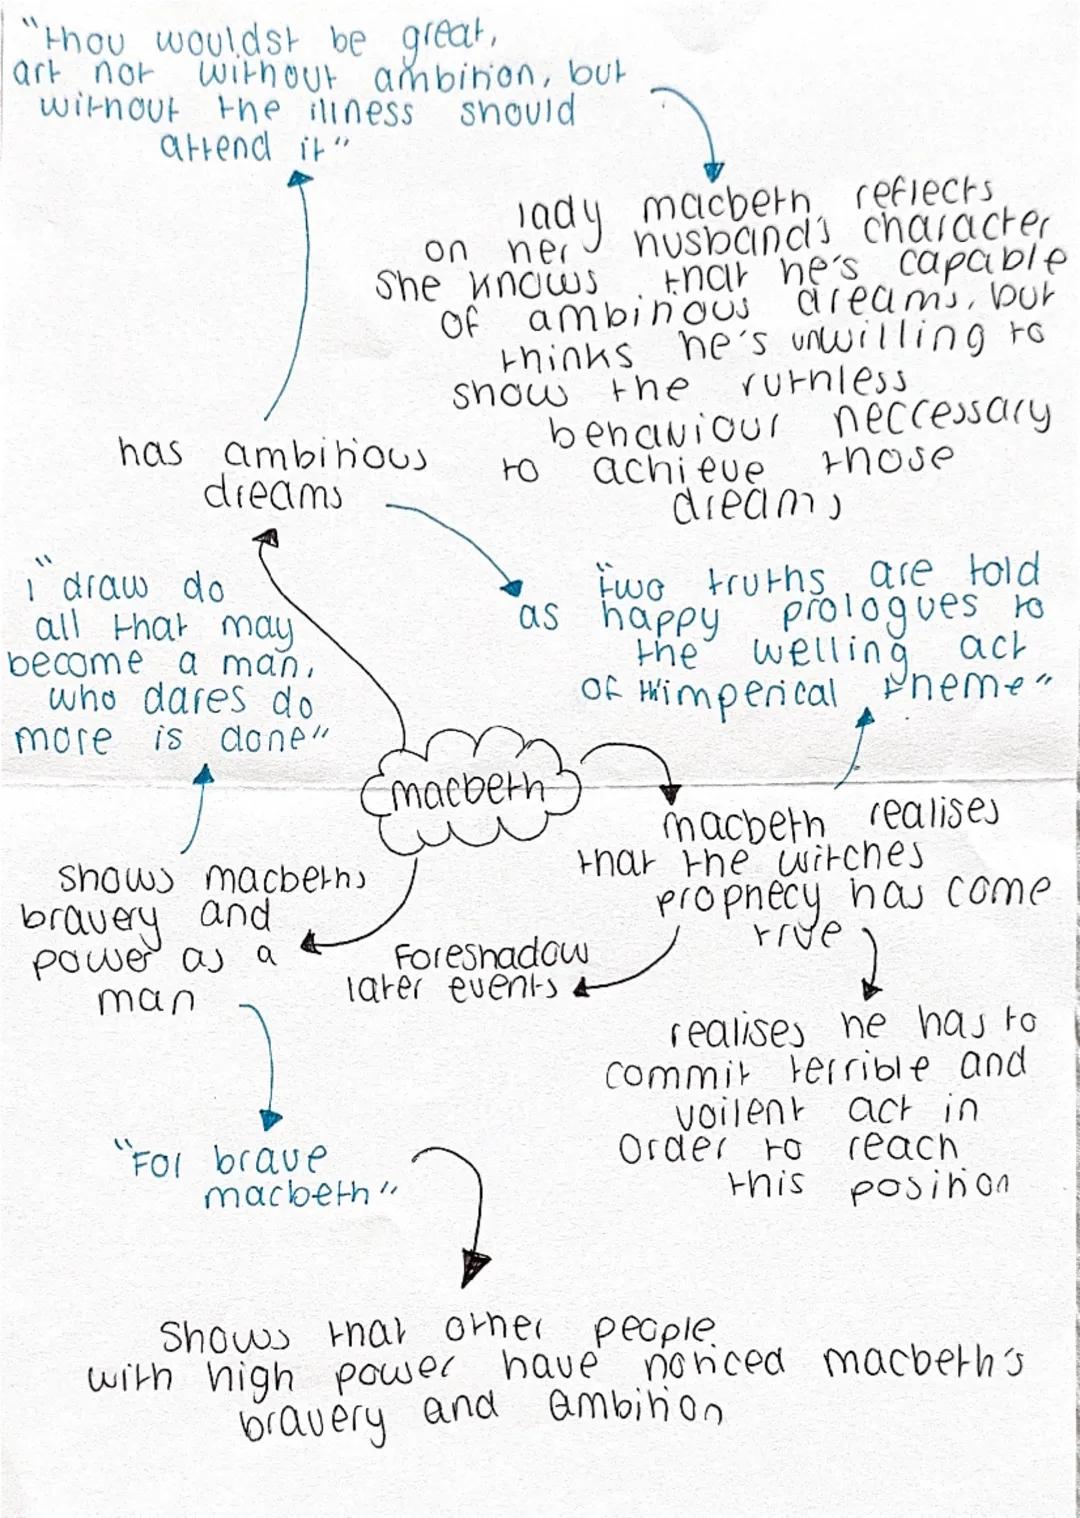 "thou wouldst be great,
art not without ambition, but
without the illness should
attend it"
lady macbeth reflects
on her husband's character
She knows that he's capable
of ambitious dreams, but
thinks he's unwilling to
show the ruthless
behaviour neccessary
to achieve those
dreams
has ambitious
dreams
i "draw do
all that may
become a man,
who dares do
more is done"
"two truths are told
as happy prologues to
the welling act
of imperical theme"
macbeth
macbeth realises
that the witches
prophecy has come
true
Foreshadow
later events
realises he has to
commit terrible and
voilent act in
order to reach
this position
Shows macbeths
bravery and
power as a
man
"For brave
macbeth"
Shows that other people
with high power have noticed macbeth's
bravery and ambition